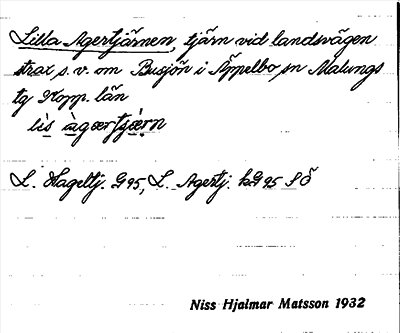 Lilla Agertjärnen, tjärn vid landsvägen
strax s.v. om Busjön i Äppelbo sn Malungs
tg Kopp. län
lìs àgærtjæ̀rn
L. Hageltj. G 95, L. Agertj. kG 95 SÖ
Niss Hjalmar Matsson 1932